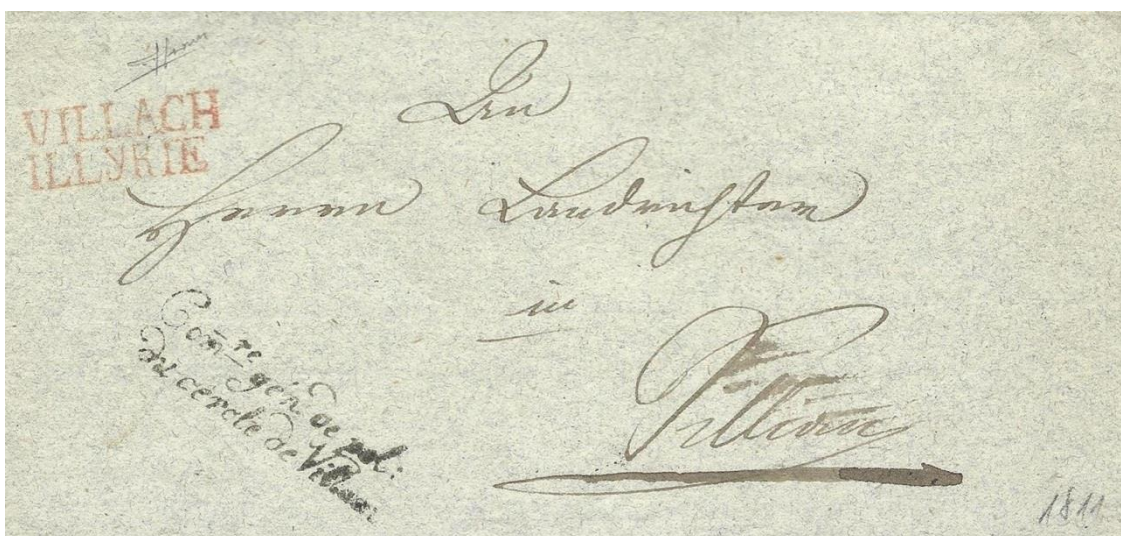 VILLACH
ILLYRIE
An
Herrn Landrichter
in
Sillian
Comre. gén. de pol.
du cercle de Villach
1811